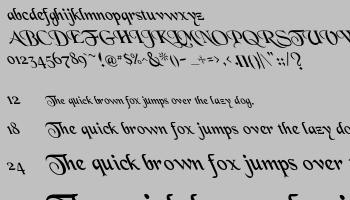 abcdefghijklmnopqrstuvwxyz
ABCDEFGHIJKLMNOPQRSTUVW
0123456789~!@#$%^&*()-_+=>,<
12 The quick brown fox jumps over the lazy dog.
18 The quick brown fox jumps over the lazy do
24 The quick brown fox jumps over